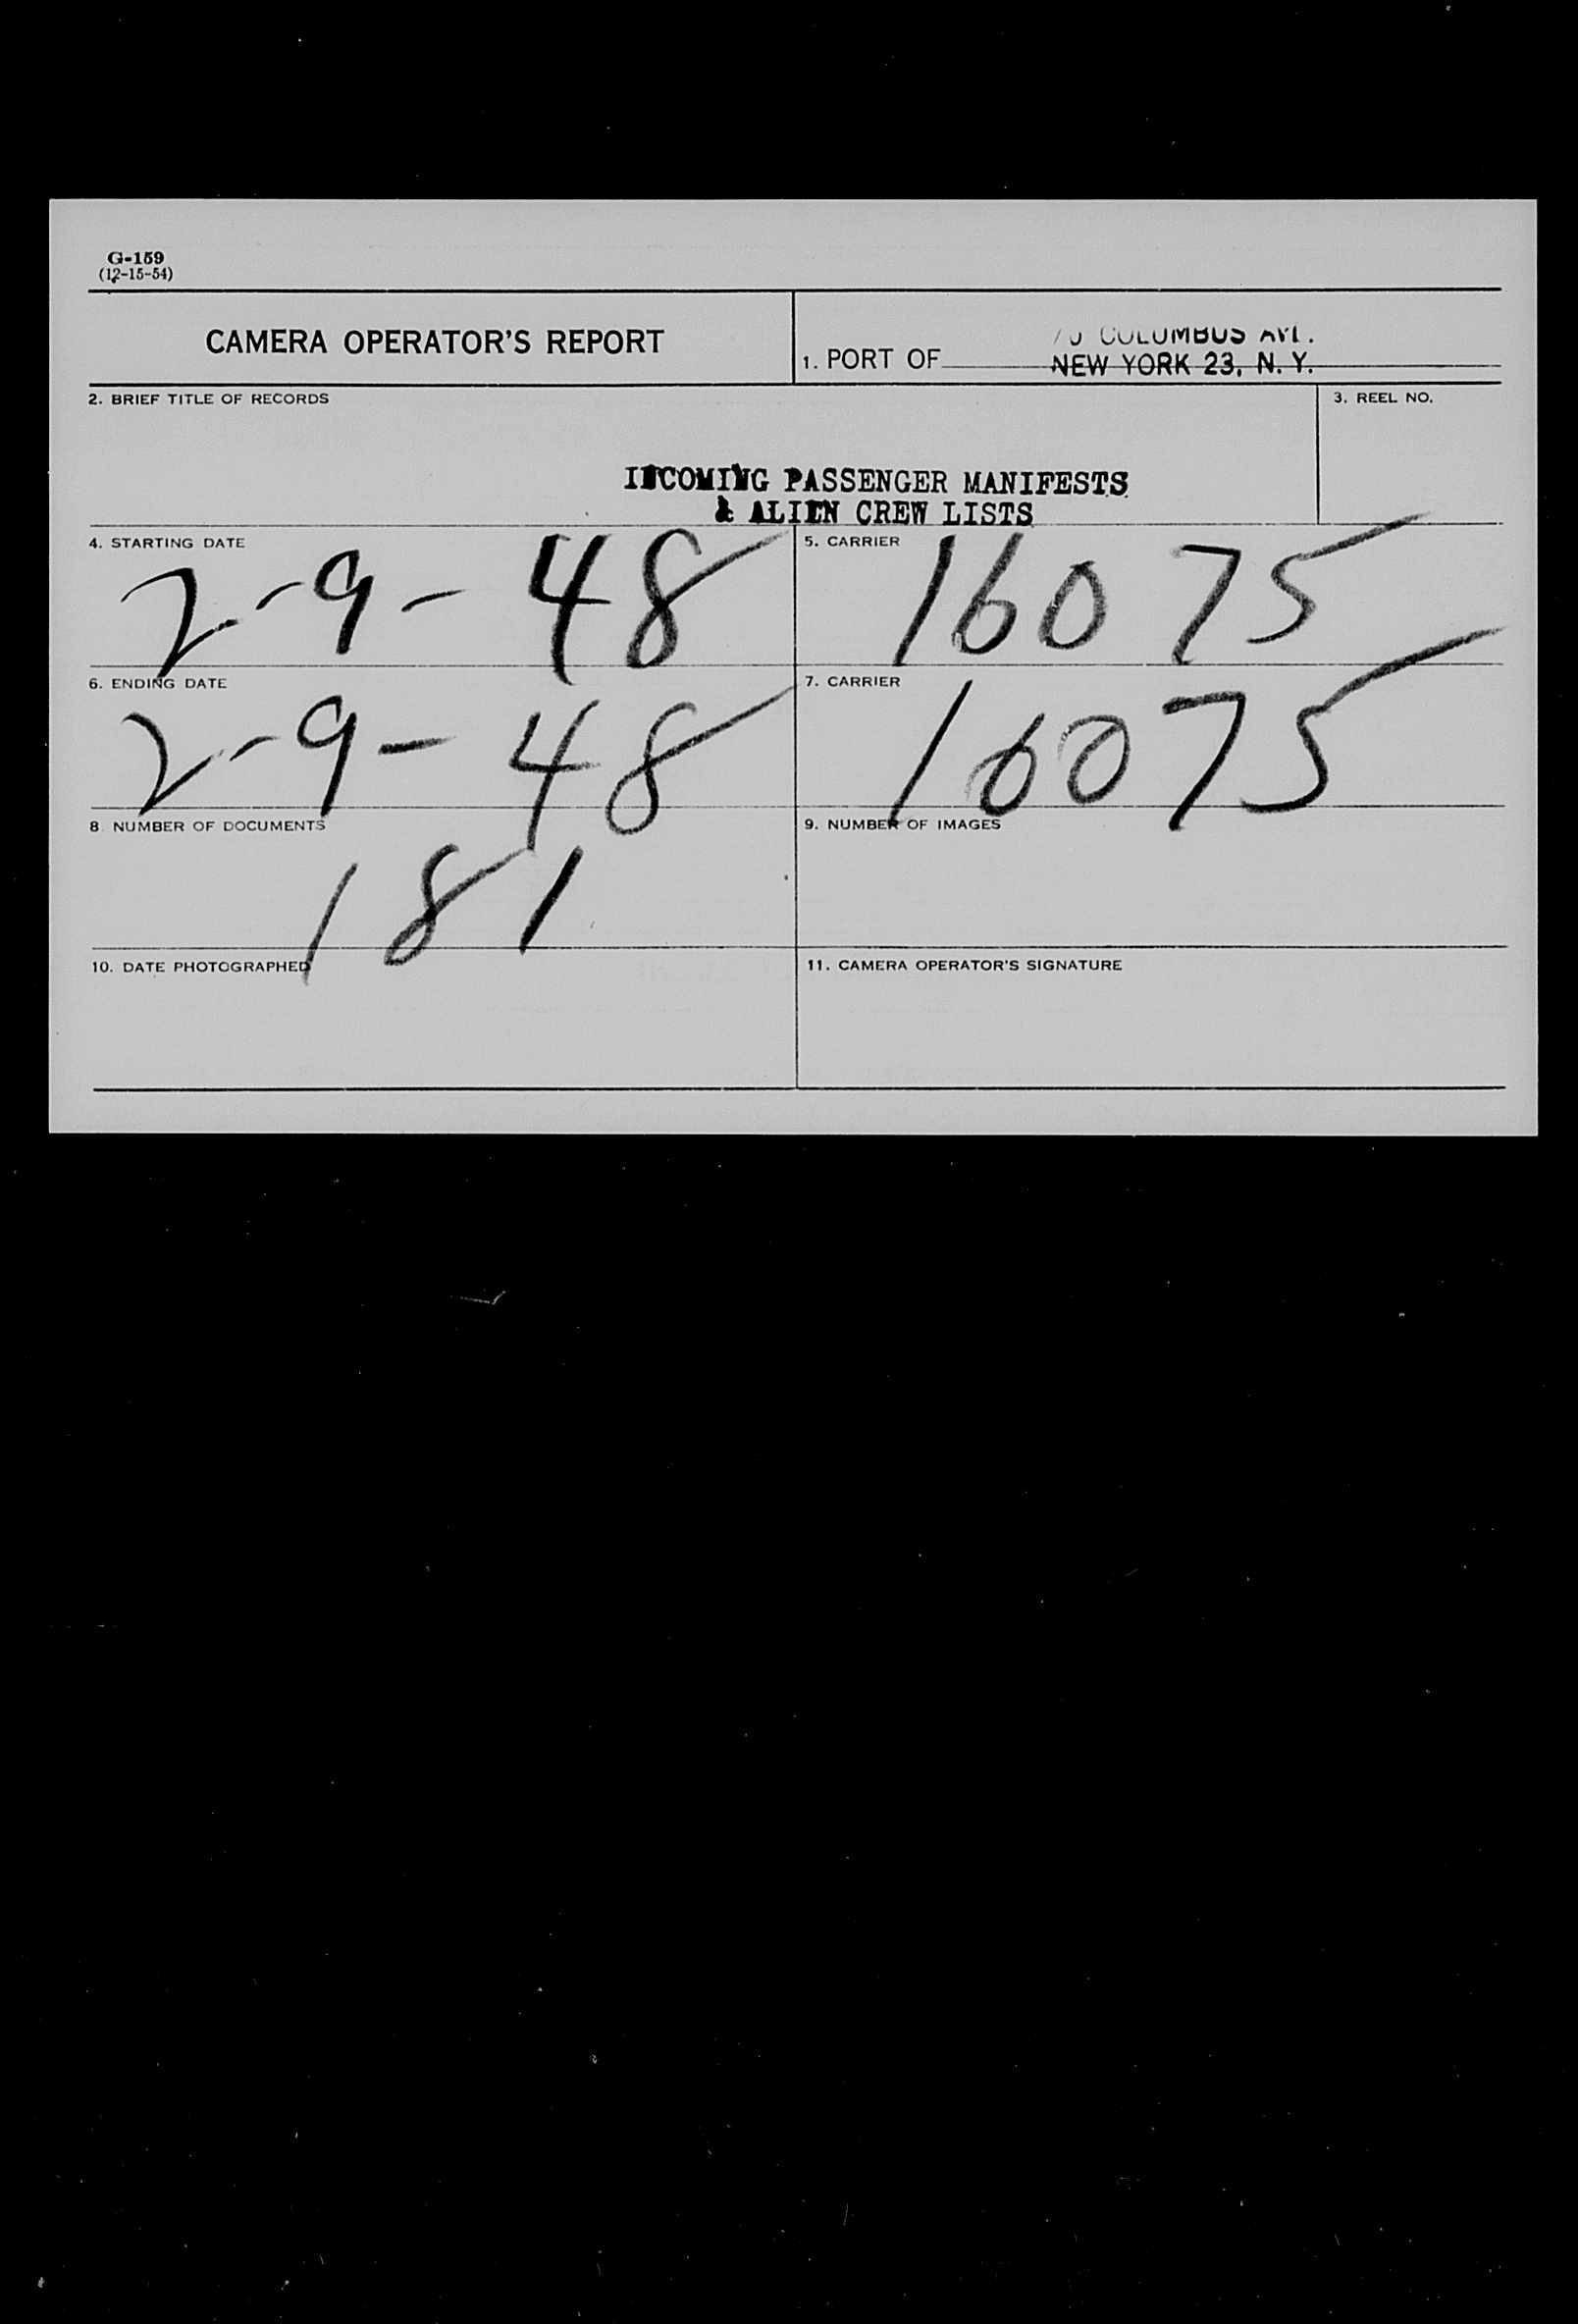 G-159
(12-15-54)
CAMERA OPERATOR'S REPORT
70 COLUMBUS AVE.
1. PORT OF NEW YORK 23, N. Y.
2. BRIEF TITLE OF RECORDS
3. REEL NO.
INCOMING PASSENGER MANIFESTS
& ALIEN CREW LISTS
4. STARTING DATE
2-9-48
5. CARRIER
16075
6. ENDING DATE
2-9-48
7. CARRIER
16075
8. NUMBER OF DOCUMENTS
181
9. NUMBER OF IMAGES
10. DATE PHOTOGRAPHED
11. CAMERA OPERATOR'S SIGNATURE